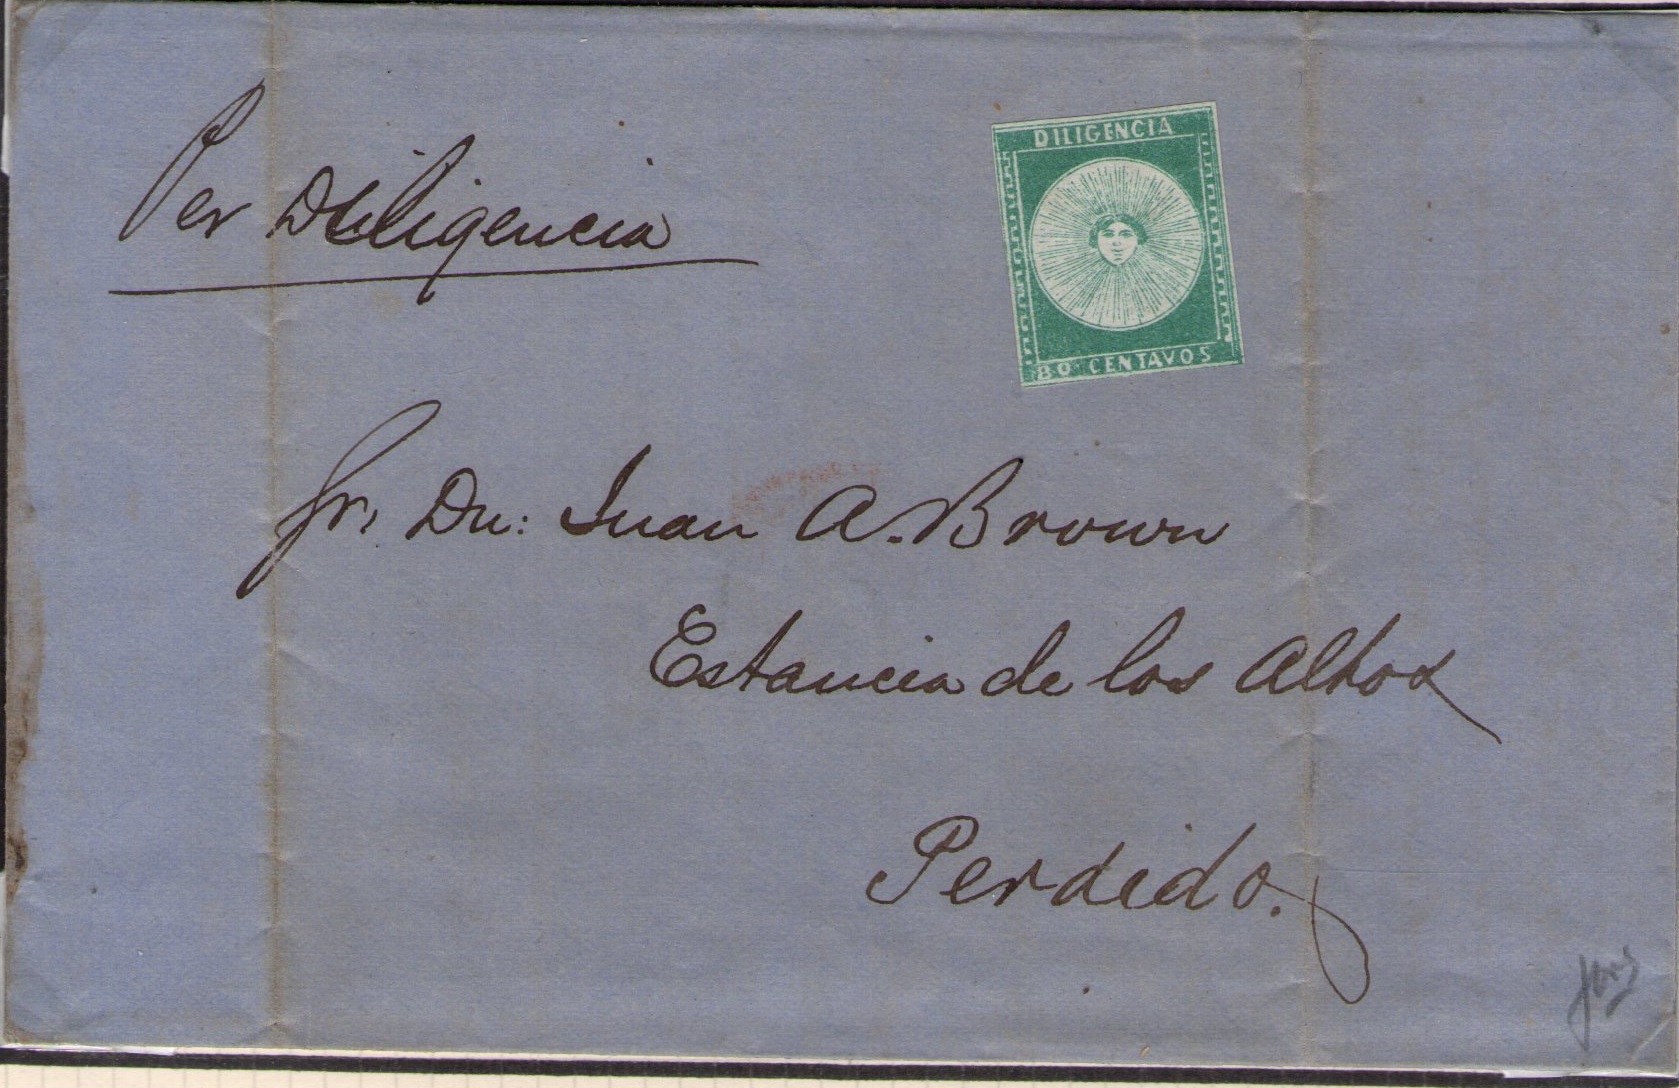 Per Diligencia
DILIGENCIA
80 CENTAVOS
Sr. Dn: Juan A. Brown
Estancia de los Altos
Perdido.